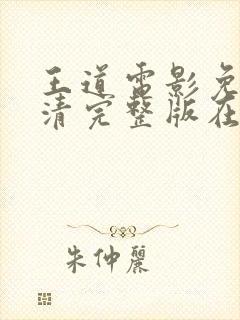 王道雷影免
清完整版在
朱仲麗